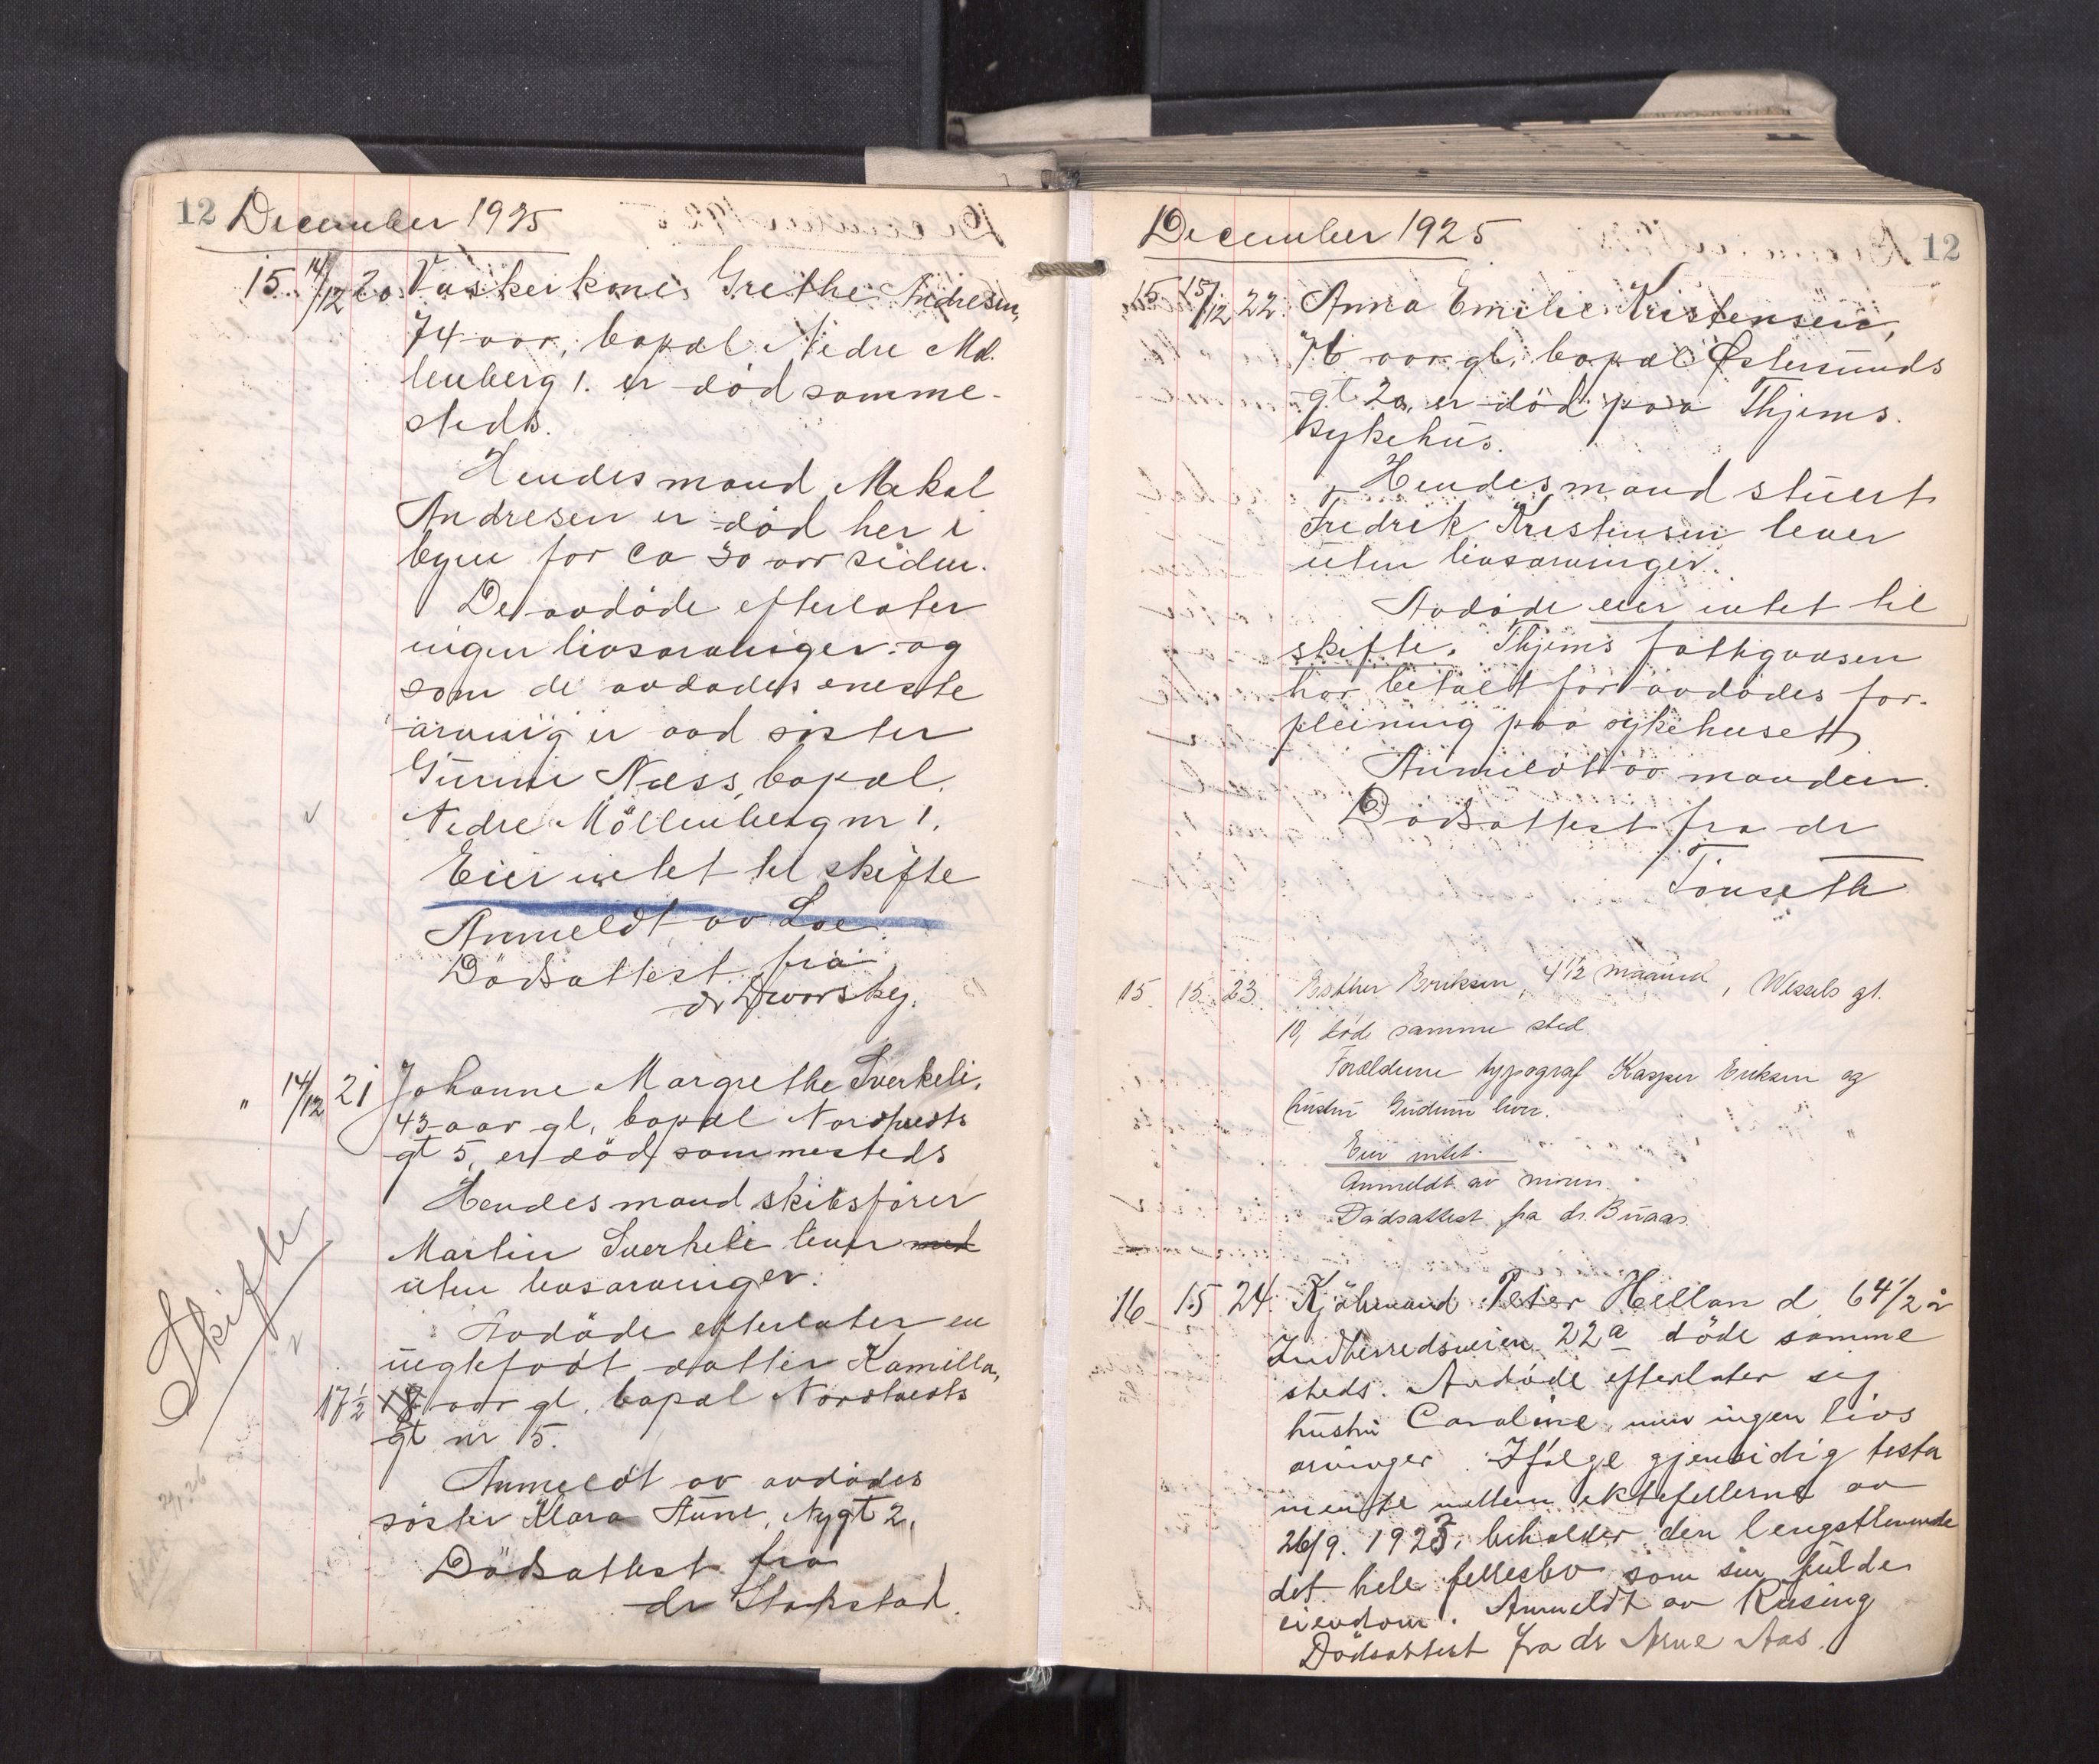 12 December 1925
15 14/12 20 Vaskerkone Grethe Andresen,
74 aar, bopæl Nedre Møl
lenberg 1. er död samme-
steds.
Hendes mand Mekal
Andresen er död her i
byen for ca 30 aar siden.
De avdöde efterlater
ingen livsarvinger og
som de avdødes eneste
arving er avd søster
Gurine Næss, bopæl.
Nedre Möllenberg nr 1.
Eier intet til skifte
Anmeldt av Loe
Dödsattest fra
dr Dworsky.
" 14/12 21 Johanne Margrethe Sverkeli,
43 aar gl, bopæl Nordtvedts
gt 5, er död sammesteds
Hendes mand skibsfører
Martin Sverkeli lever med
uten livsarvinger.
Skifte
Avdöde efterlater en
uegtefödt datter Kamilla,
17½ 18 aar gl. bopæl Nordtvedts
gt nr 5.
Anmeldt av avdödes
söster Klara Aune, Nygt 2.
Dödsattest fra
dr Stokstad.
December 1925 12
15 15/12 22. Anna Emilie Kristensen,
76 aar gl. bopæl Østersunds
gt 2a, er död paa Thjems
sykehus.
Hendes mand stuert
Fredrik Kristensen lever
uten livsarvinger.
Avdöde eier intet til
skifte. Thjems fattigvæsen
har betalt for avdödes for-
pleining paa sykehuset
Anmeldt av manden.
Dödsattest fra dr
Tønseth
15. 15. 23. Esther Eriksen, 4½ maaned, Wessels gt.
10, död samme sted.
Forældrene typograf Kasper Eriksen og
hustru Gudrun lever.
Eier intet.
Anmeldt av moren.
Dødsattest fra dr. Buaas.
16 15 24. Kjörmand Peter Helland 64½ år
Indherredsveien 22a döde samme
steds. Avdöde efterlater sig
hustru Caroline, men ingen livs
arvinger. Ifølge gjensidig testa
mente mellem ektefellerne av
26/9. 1923, beholder den lengstlevende
det hele fellesbo som sin fulde
eiendom. Anmeldt av Rusing
Dödsattest fra dr Arne Aas.